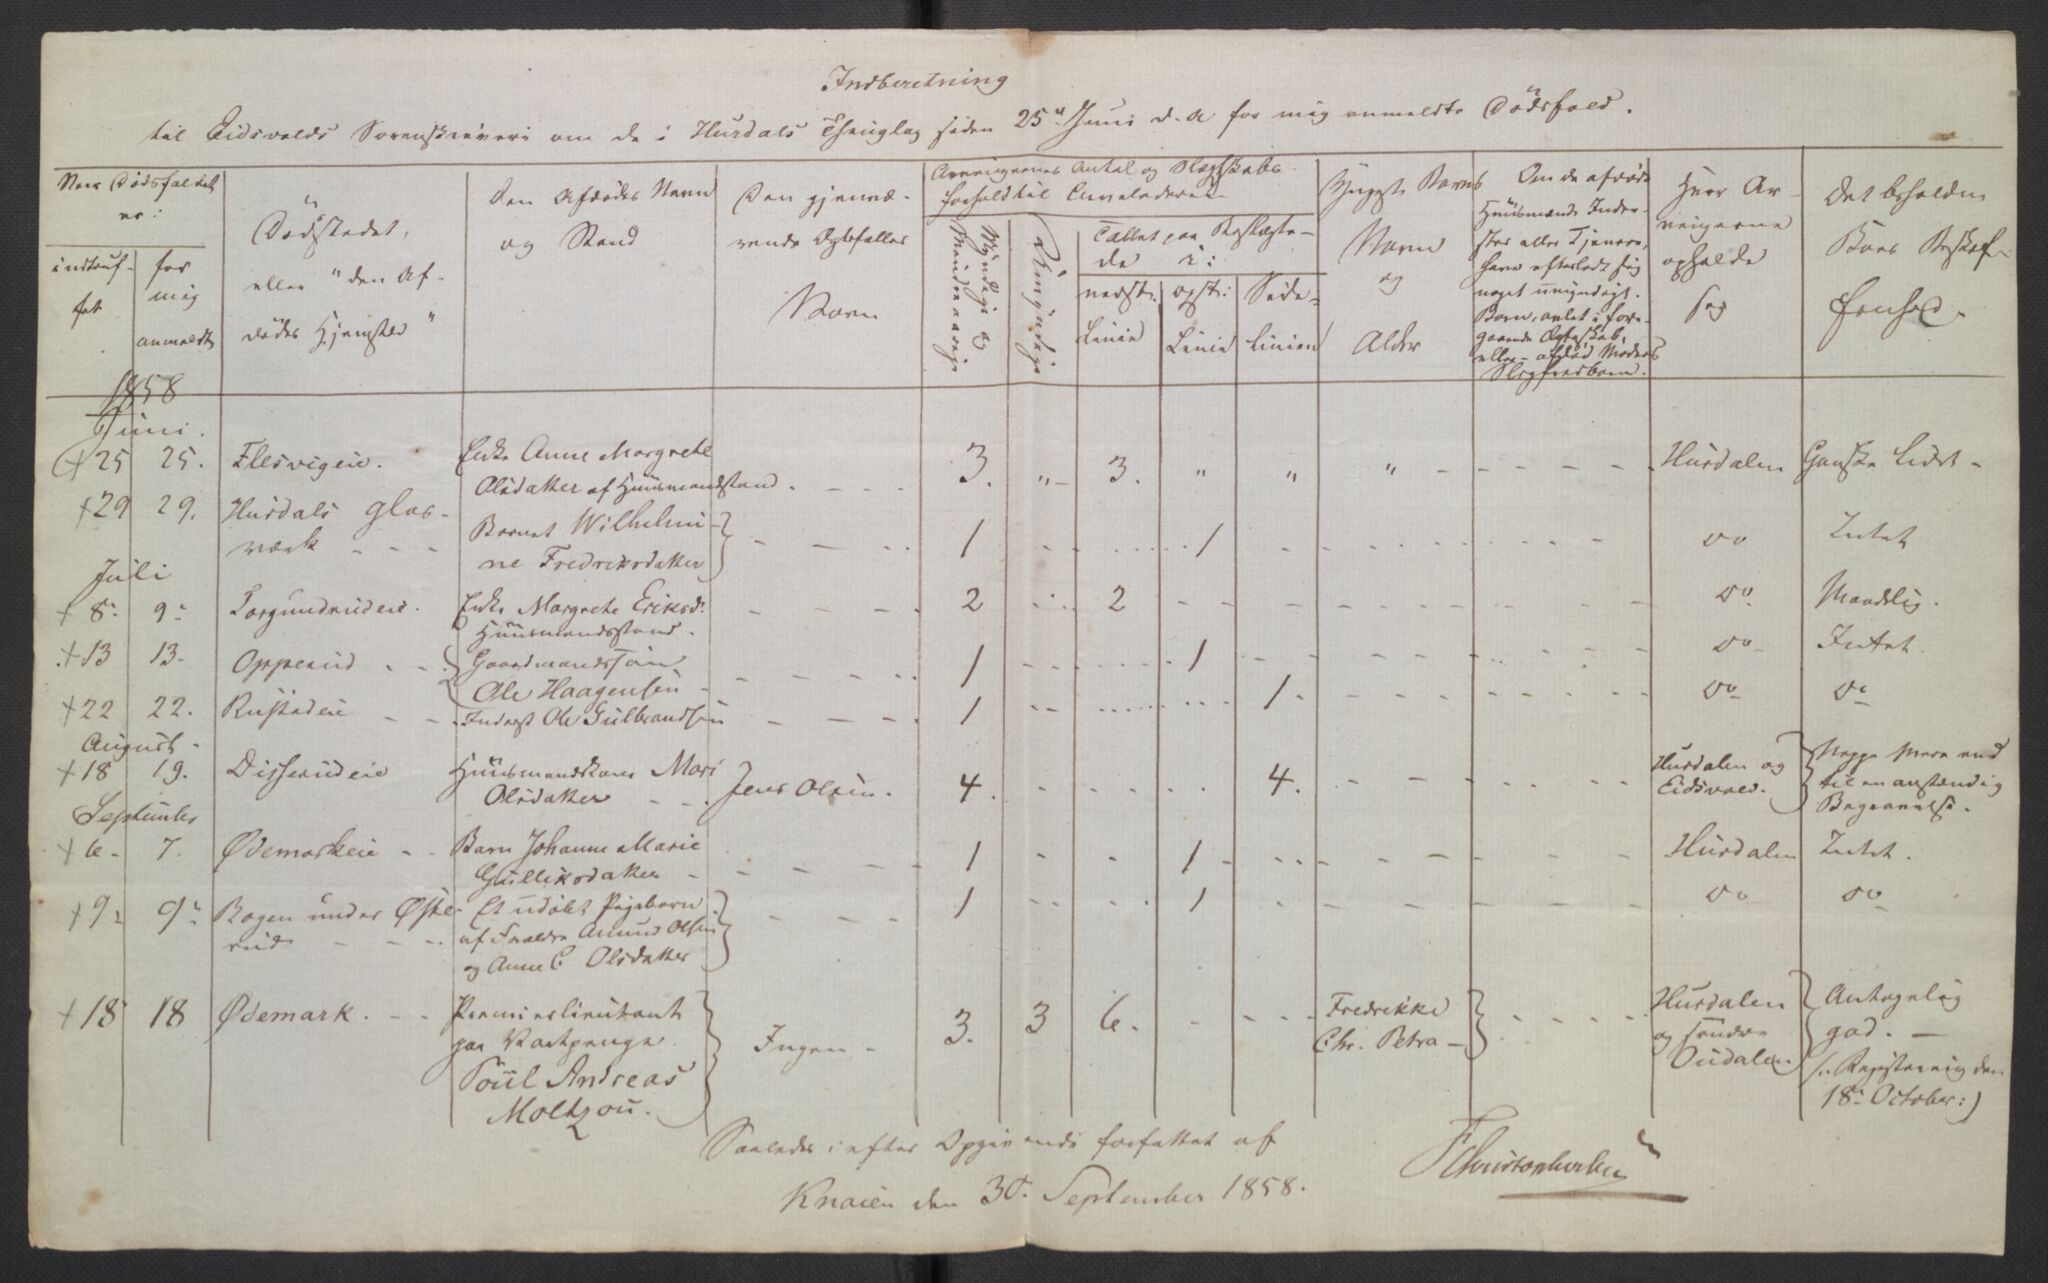 Indberetning
til Eidsvolds Sorenskriveri om de i Hurdals Thinglag siden 25d Juni d. A for mig anmeldte Dödsfald.
Naar Dödsfaldet
er:
indtruf-
fet
for
mig
anmeldt
Dödsstedet,
eller "den Af-
dödes Hjemsted"
Den Afdödes Navn
og Stand
Den gjenvæ-
rende Ægtefælles
Navn
Arvingernes Antal og Slægtskabs
forhold til Arveladeren
Myndige og
Mindreaarige
Umyndige
Tallet paa Beslægte-
de i:
nedst:
Linie
opst:
Linie
Side-
linien
Yngste Barns
Navn
og
Alder
Om de afdöde
Huusmænds Inder-
ster eller Tjenere,
have efterladt sig
noget umyndigt
Barn, avlet i fore-
gaaende Ægteskab,
eller afdöd Moders
Slegfredbarn.
Hvor Ar-
vingerne
opholde
sig
Det beholdne
Boes Beskaf-
fenhed.
1858
Juni.
+25 25. Flesvigeie. Enke Anne Margrete
Olsdatter af Huusmandsstand. - - - 3. " - 3. " " " - - - - - Hurdalen Ganske Lidet -
+29 29. Hurdals Glas-
værk - - - Barnet Wilhelmi-
ne Fredriksdatter 1 1 do Intet
Juli
+ 8. 9. Torgundrudeie. Enke Margrete Eriksd.
Huusmandsstand. 2 2 do Maadelig.
+13 13. Opperud - - Gaardmandssön
Ole Haagensen 1 1 do Intet.
+22 22. Rustadeie - - Inderst Ole Gulbrandsen 1 1. do do
August -
+18 19. Disserudeie Huusmandskone Mari
Olsdatter - - . Jens Olsen. 4. 4. Hurdalen og
Eidsvold. Neppe mere end
til en anstændig
Begravelse.
September
+6 - 7. Ødemarkeie - - Barn Johanne Marie
Gulliksdatter - 1 1 Hurdalen Intet.
+9. 9. Bagen under Øste-
rud - - - Et udöbt Pigebarn
af Forældre Amund Olsen
og Anne C. Olsdatter 1 1 do do
+18 18 Ødemark. - - Premierlieutenant
paa Vartpenge
Poul Andreas
Moltzou. Ingen - 3. 3 6. Fredrikke
Chr. Petra - Hurdalen
og söndre
Oudalen. Antagelig
god. -
(:Registrering den
18. October:)
Saaledes i efter Opgivende forfattet af
Knaien den 30. September 1858. FChristophersen